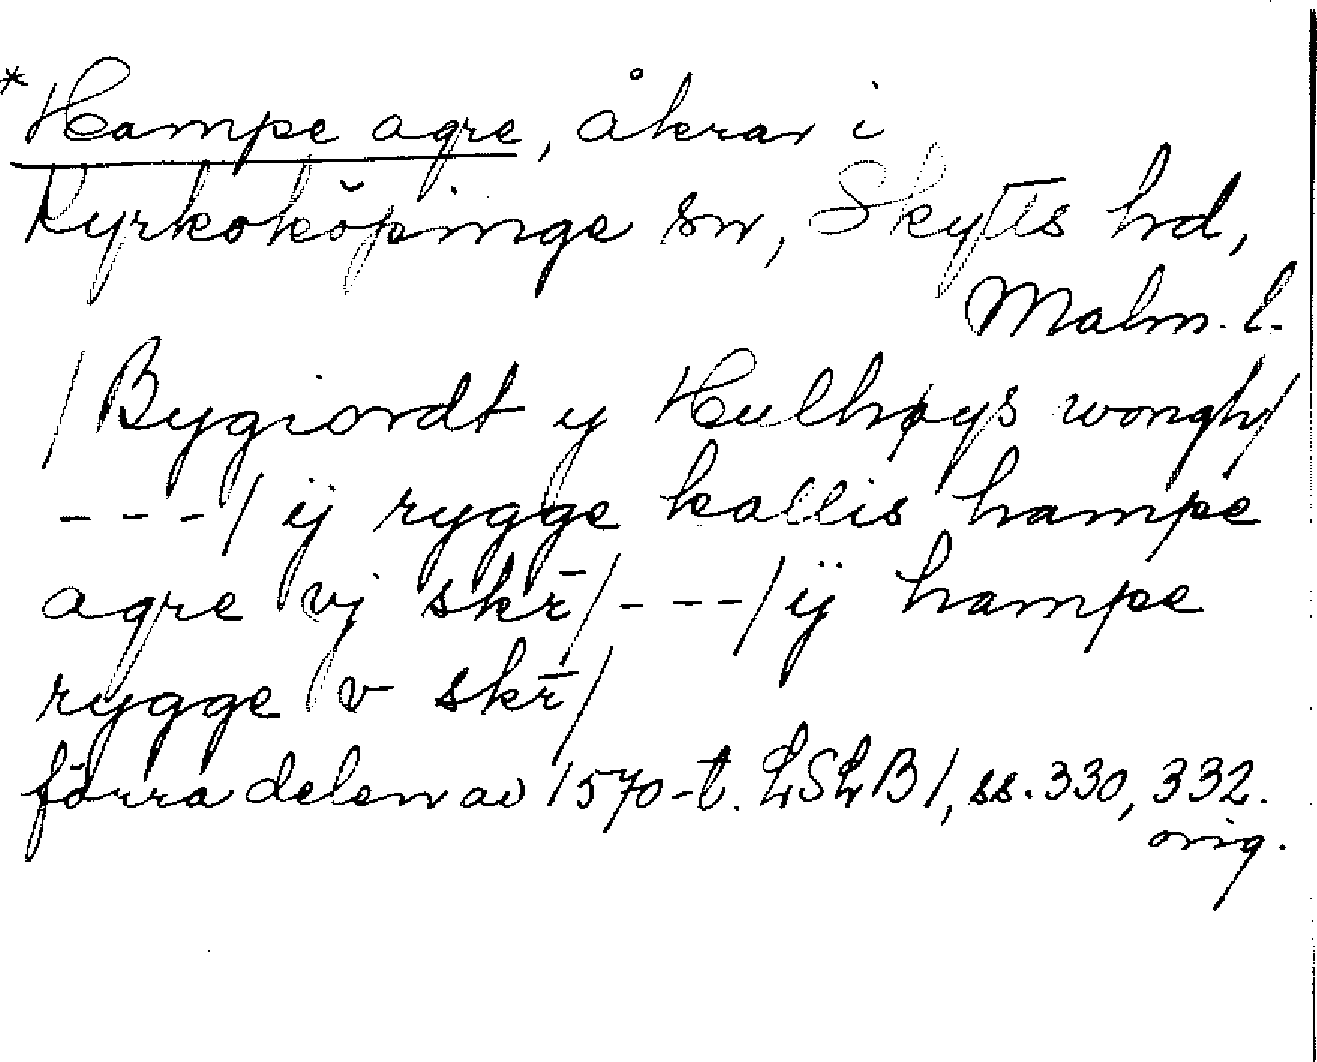 *Hampe agre, åkrar i
Kyrkoköpinge sn, Skytts hd,
Malm. l.
/Bygiordt y Hulhøys wongh/
---/ ij rygge kallis hampe
agre vj skr̄/---/ij hampe
rygge v skr̄/
förra delen av 1570-t. LSLB 1, ss. 330, 332.
orig.